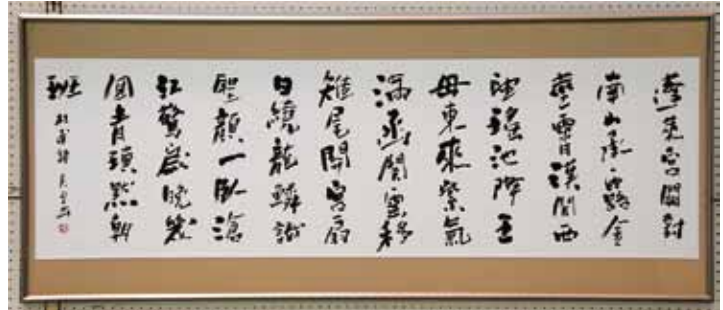 蓬萊宮闕對
南山承露金
莖霄漢間西
望瑤池降王
母東來紫氣
滿函関雲移
雉尾開宮扇
日繞龍鱗識
聖顔一臥滄
江驚歳晩幾
回青瑣點朝
班
杜甫詩